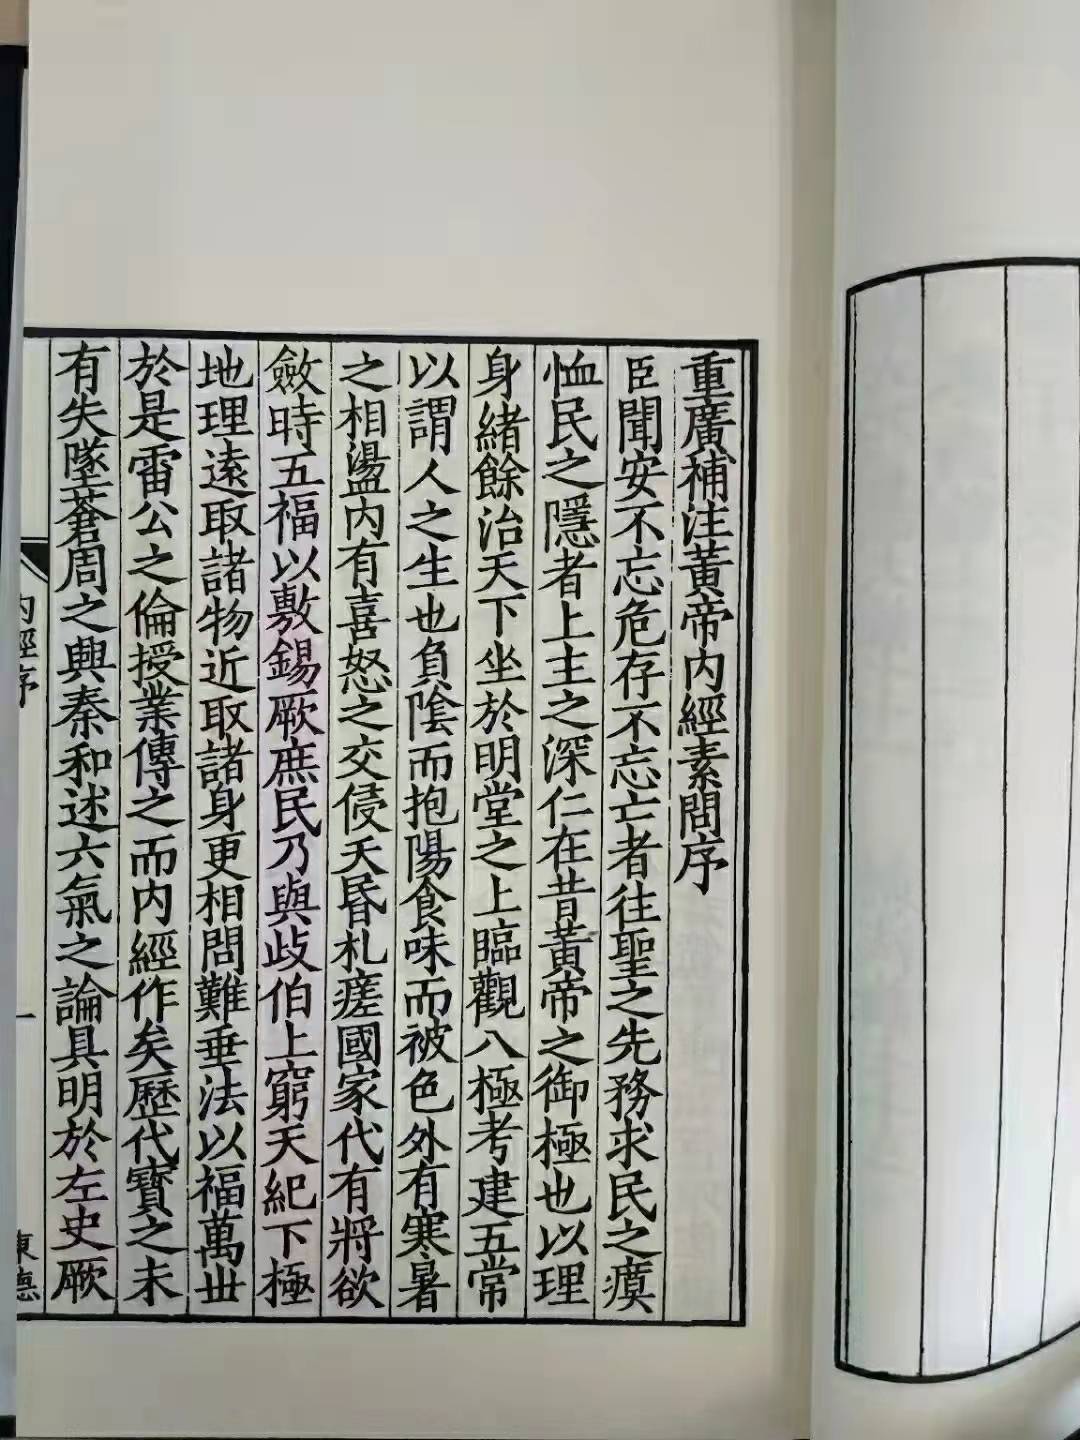 重廣補注黃帝內經素問序
臣聞安不忘危存不忘亡者往聖之先務求民之瘼
恤民之隱者上主之深仁在昔黃帝之御極也以理
身緒餘治天下坐於明堂之上臨觀八極考建五常
以謂人之生也負陰而抱陽食味而被色外有寒暑
之相盪內有喜怒之交侵夭昏札瘥國家代有將欲
斂時五福以敷錫厥庶民乃與歧伯上窮天紀下極
地理遠取諸物近取諸身更相問難垂法以福萬世
於是雷公之倫授業傳之而內經作矣歷代寶之未
有失墜蒼周之興秦和述六氣之論具明於左史厥
內經序
一